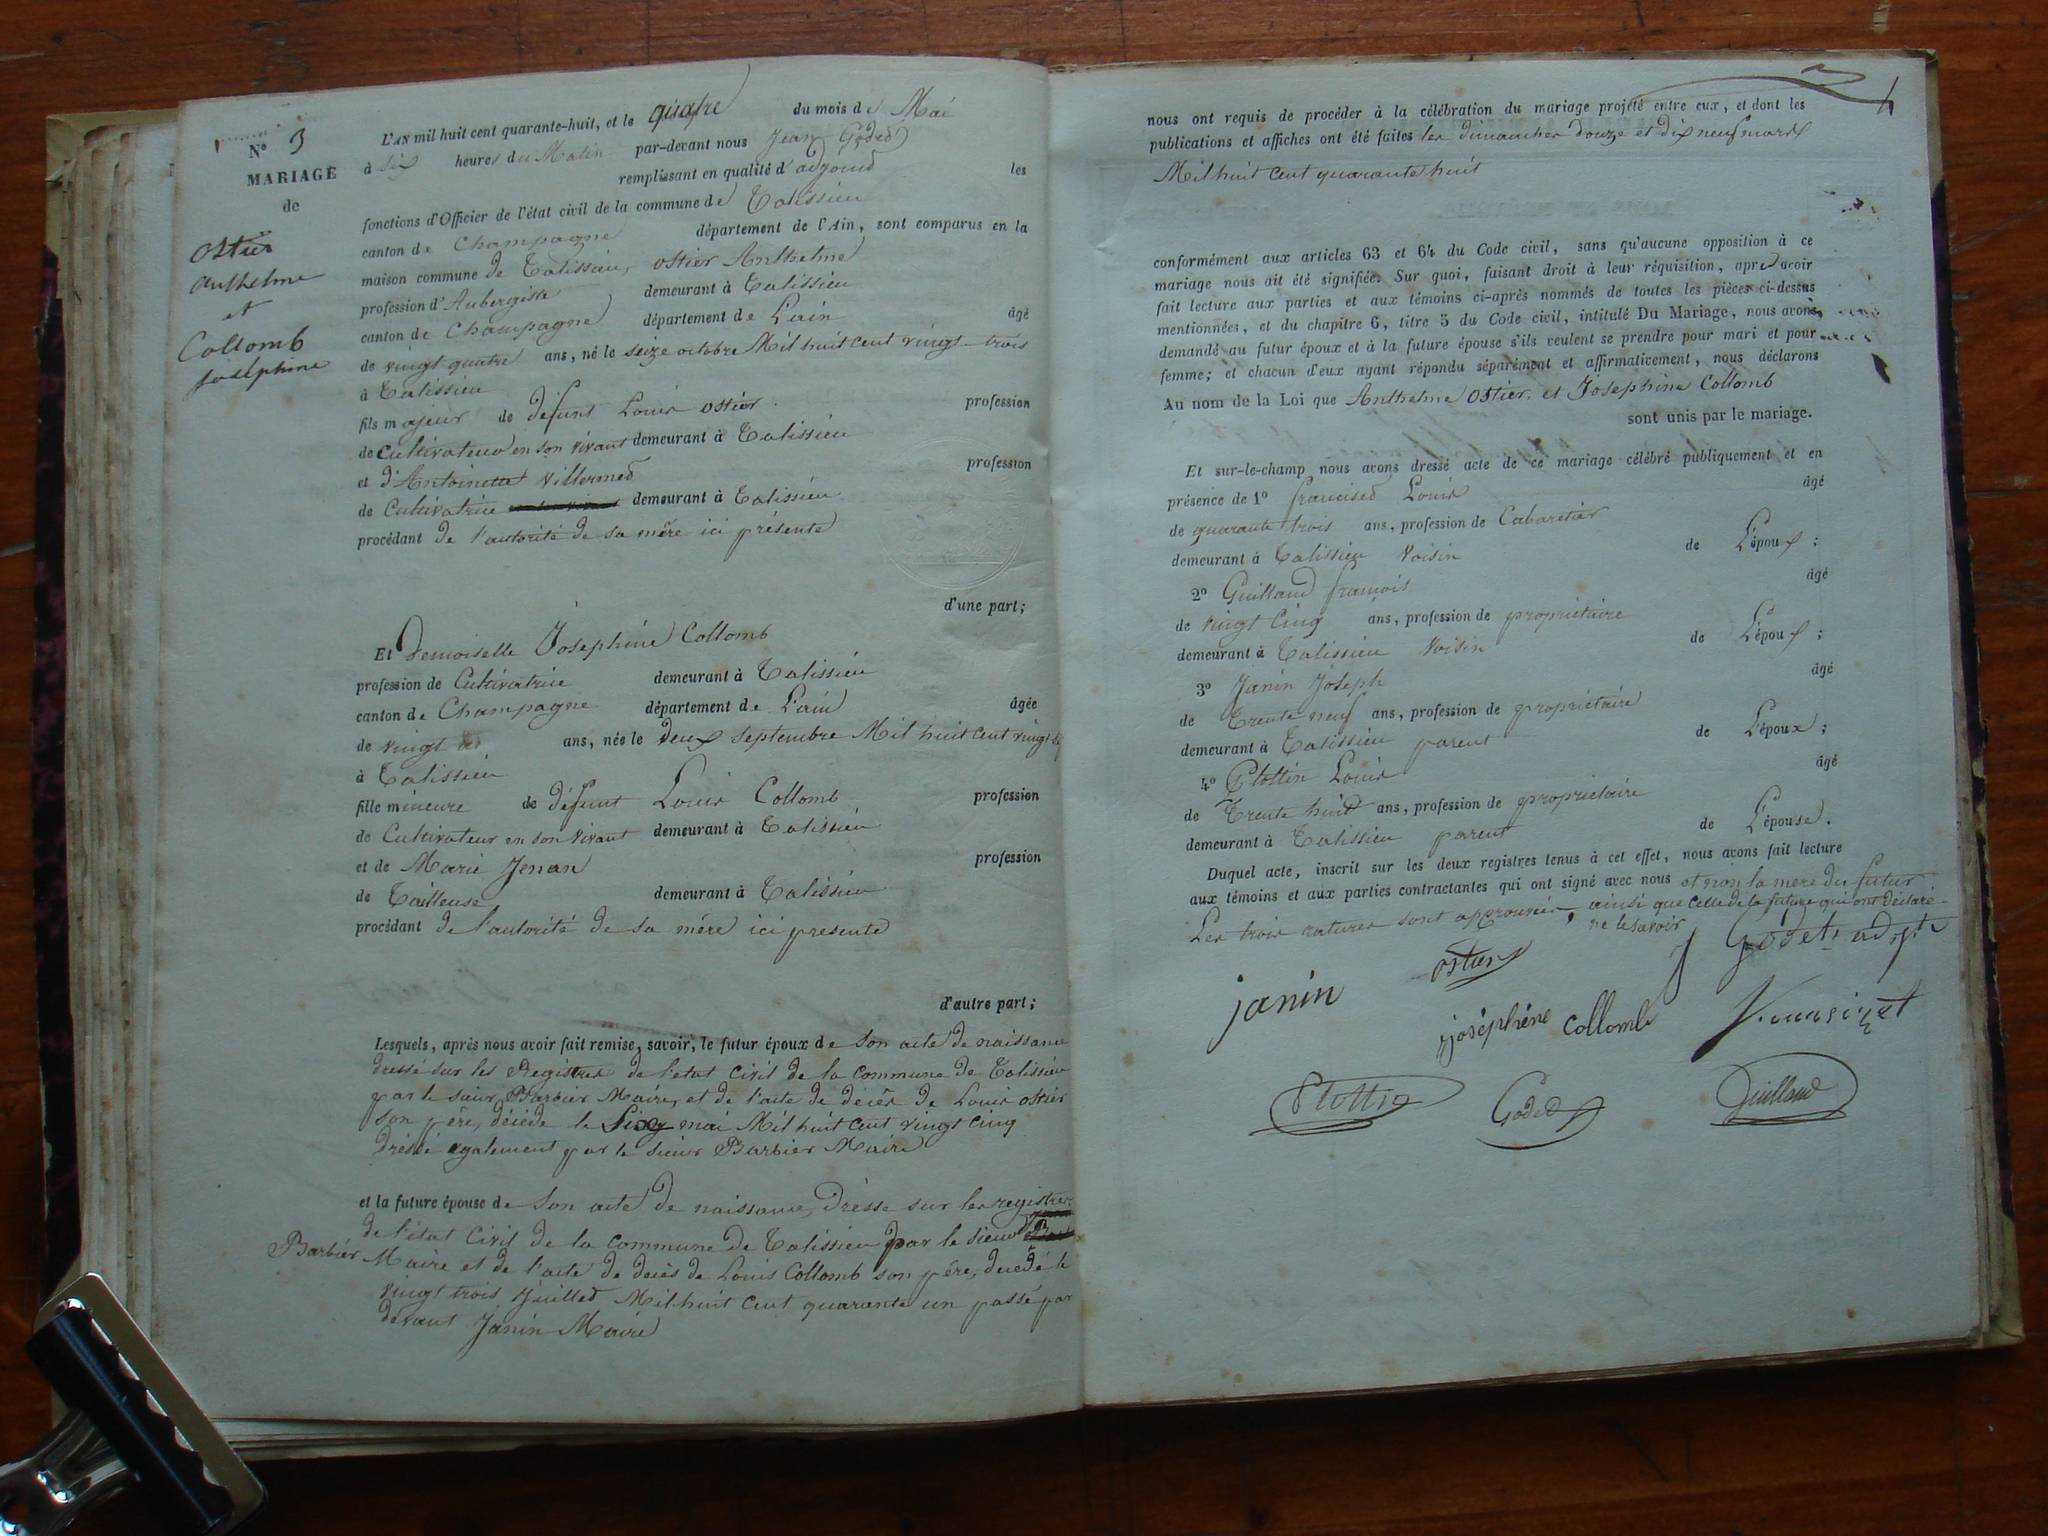 N° 3
MARIAGE
de
Ostier
Anthelme
et
Collomb
Joséphine
L'AN mil huit cent quarante-huit, et le quatre du mois de Mai
à six heures du Matin par-devant nous Jean Goded
remplissant en qualité d'adjoint les
fonctions d'Officier de l'état civil de la commune de Talissieu
canton de Champagne département de l'Ain, sont comparus en la
maison commune de Talissieu, Ostier Anthelme
profession d'Aubergiste demeurant à Talissieu
canton de Champagne département de L'ain âgé
de vingt quatre ans, né le seize octobre Mil huit cent vingt-trois
à Talissieu
fils majeur de défunt Louis Ostier profession
de Cultivateur en son vivant demeurant à Talissieu
et d'Antoinette Villermed profession
de Cultivatrice demeurant à Talissieu
procédant de l'autorité de sa mère ici présente
d'une part;
Et Demoiselle Joséphine Collomb
profession de Cultivatrice demeurant à Talissieu
canton de Champagne département de L'ain âgée
de vingt ans, née le deux septembre Mil huit cent vingt
à Talissieu
fille mineure de défunt Louis Collomb profession
de Cultivateur en son vivant demeurant à Talissieu
et de Marie Jenan profession
de Tailleuse demeurant à Talissieu
procédant de l'autorité de sa mère ici presente
d'autre part;
Lesquels, après nous avoir fait remise, savoir, le futur époux de son acte de naissance
dressé sur les Registres de l'état civil de la commune de Talissieu
par le sieur Barbier Maire, et de l'acte de décès de Louis Ostier
son père, décédé le Six mai Mil huit cent vingt cinq
dressé egalement par le sieur Barbier Maire
et la future épouse de Son acte de naissance, dressé sur les registres
de l'état Civil de la commune de Talissieu par le sieur
Barbier Maire et de l'acte de decès de Louis Collomb son père, decedé le
vingt trois Juillet Mil huit cent quarante un passé par
devant Janin Maire
4
nous ont requis de procéder à la célébration du mariage projeté entre eux, et dont les
publications et affiches ont été faites les dimanches douze et dix neuf mars
Mil huit cent quarante huit
conformément aux articles 63 et 64 du Code civil, sans qu'aucune opposition à ce
mariage nous ait été signifiée. Sur quoi, faisant droit à leur réquisition, après avoir
fait lecture aux parties et aux témoins ci-après nommés de toutes les pièces ci-dessus
mentionnées, et du chapitre 6, titre 5 du Code civil, intitulé Du Mariage, nous avons
demandé au futur époux et à la future épouse s'ils veulent se prendre pour mari et pour
femme; et chacun d'eux ayant répondu séparément et affirmativement, nous déclarons
Au nom de la Loi que Anthelme Ostier, et Josephine Collomb
sont unis par le mariage.
Et sur-le-champ nous avons dressé acte de ce mariage célébré publiquement et en
présence de 1° Louis âgé
de quarante trois ans, profession de Cabaretier
demeurant à Talissieu Voisin de L'époux;
2° Guilland francois âgé
de vingt cinq ans, profession de propriétaire
demeurant à Talissieu Voisin de L'époux;
3° Janin Joseph âgé
de Trente neuf ans, profession de propriétaire
demeurant à Talissieu parent de L'époux;
4° Plottin Louis âgé
de Trente huit ans, profession de propriétaire
demeurant à Talissieu parent de L'épouse.
Duquel acte, inscrit sur les deux registres tenus à cet effet, nous avons fait lecture
aux témoins et aux parties contractantes qui ont signé avec nous et non la mere du futur
Les trois ratures sont approuvées, ainsi que celle de la future qui ont déclaré
ne le savoir
Godet adjt
janin
Ostier
joséphine collomb
Plottin
Goded
Guilland